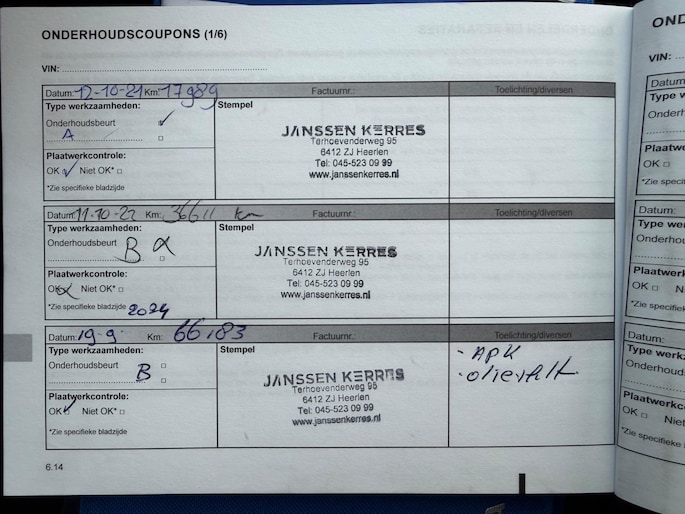 ONDERHOUDSCOUPONS (1/6)
VIN:
Datum: 12-10-21 Km: 17989 Factuurnr.: Toelichting/diversen
Type werkzaamheden: Stempel
Onderhoudsbeurt ✓
A
Plaatwerkcontrole:
OK ✓ Niet OK*
*Zie specifieke bladzijde
JANSSEN KERRES
Terhoevenderweg 95
6412 ZJ Heerlen
Tel: 045-523 09 99
www.janssenkerres.nl
Datum: 11-10-22 Km: 36611 km Factuurnr.: Toelichting/diversen
Type werkzaamheden: Stempel
Onderhoudsbeurt B
Plaatwerkcontrole:
OK Niet OK*
*Zie specifieke bladzijde
JANSSEN KERRES
Terhoevenderweg 95
6412 ZJ Heerlen
Tel: 045-523 09 99
www.janssenkerres.nl
2024
Datum: 19-9. Km: 66.183 Factuurnr.: Toelichting/diversen
Type werkzaamheden: Stempel
Onderhoudsbeurt
B
Plaatwerkcontrole:
OK ✓ Niet OK*
*Zie specifieke bladzijde
JANSSEN KERRES
Terhoevenderweg 95
6412 ZJ Heerlen
Tel: 045-523 09 99
www.janssenkerres.nl
- APK
6.14
OND
VIN:
Datum:
Type w
Onderh
Plaatwe
OK
*Zie spec
Datum:
Type we
Onderhou
Plaatwerk
OK Ni
*Zie specifie
Datum:
Type werkz
Onderhoudsb
Plaatwerkco
OK Niet
*Zie specifieke